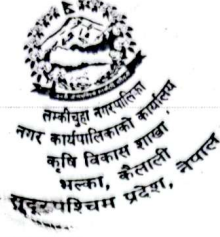 लम्कीचुहा नगरपालिका
नगर कार्यपालिकाको कार्यालय
कृषि विकास शाखा
भल्का, कैलाली
सुदूरपश्चिम प्रदेश, नेपाल